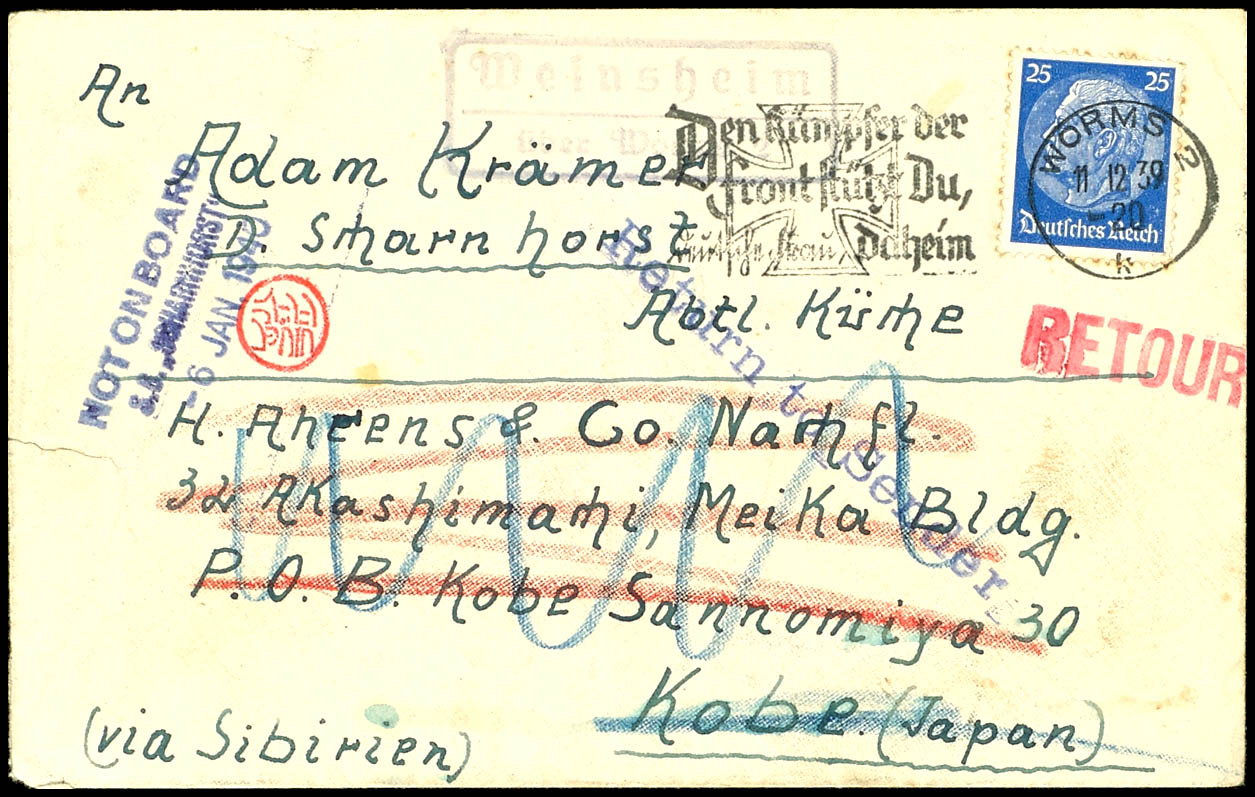 An
Adam Krämer
D. Scharnhorst
Abtl. Küche
H. Ahrens & Co. Nachfl.
32 Akashimachi, Meika Bldg.
P. O. B. Kobe Sannomiya 30
Kobe (Japan)
(via Sibirien)
Weinsheim
über
Den Kämpfer der
Front stützt Du,
deutsche Frau, daheim
25 25
Deutsches Reich
WORMS 2
11 12 39
-20
k
NOT ON BOARD
S.S. „SCHARNHORST“
- 6 JAN. 19
Return to Sender
RETOUR